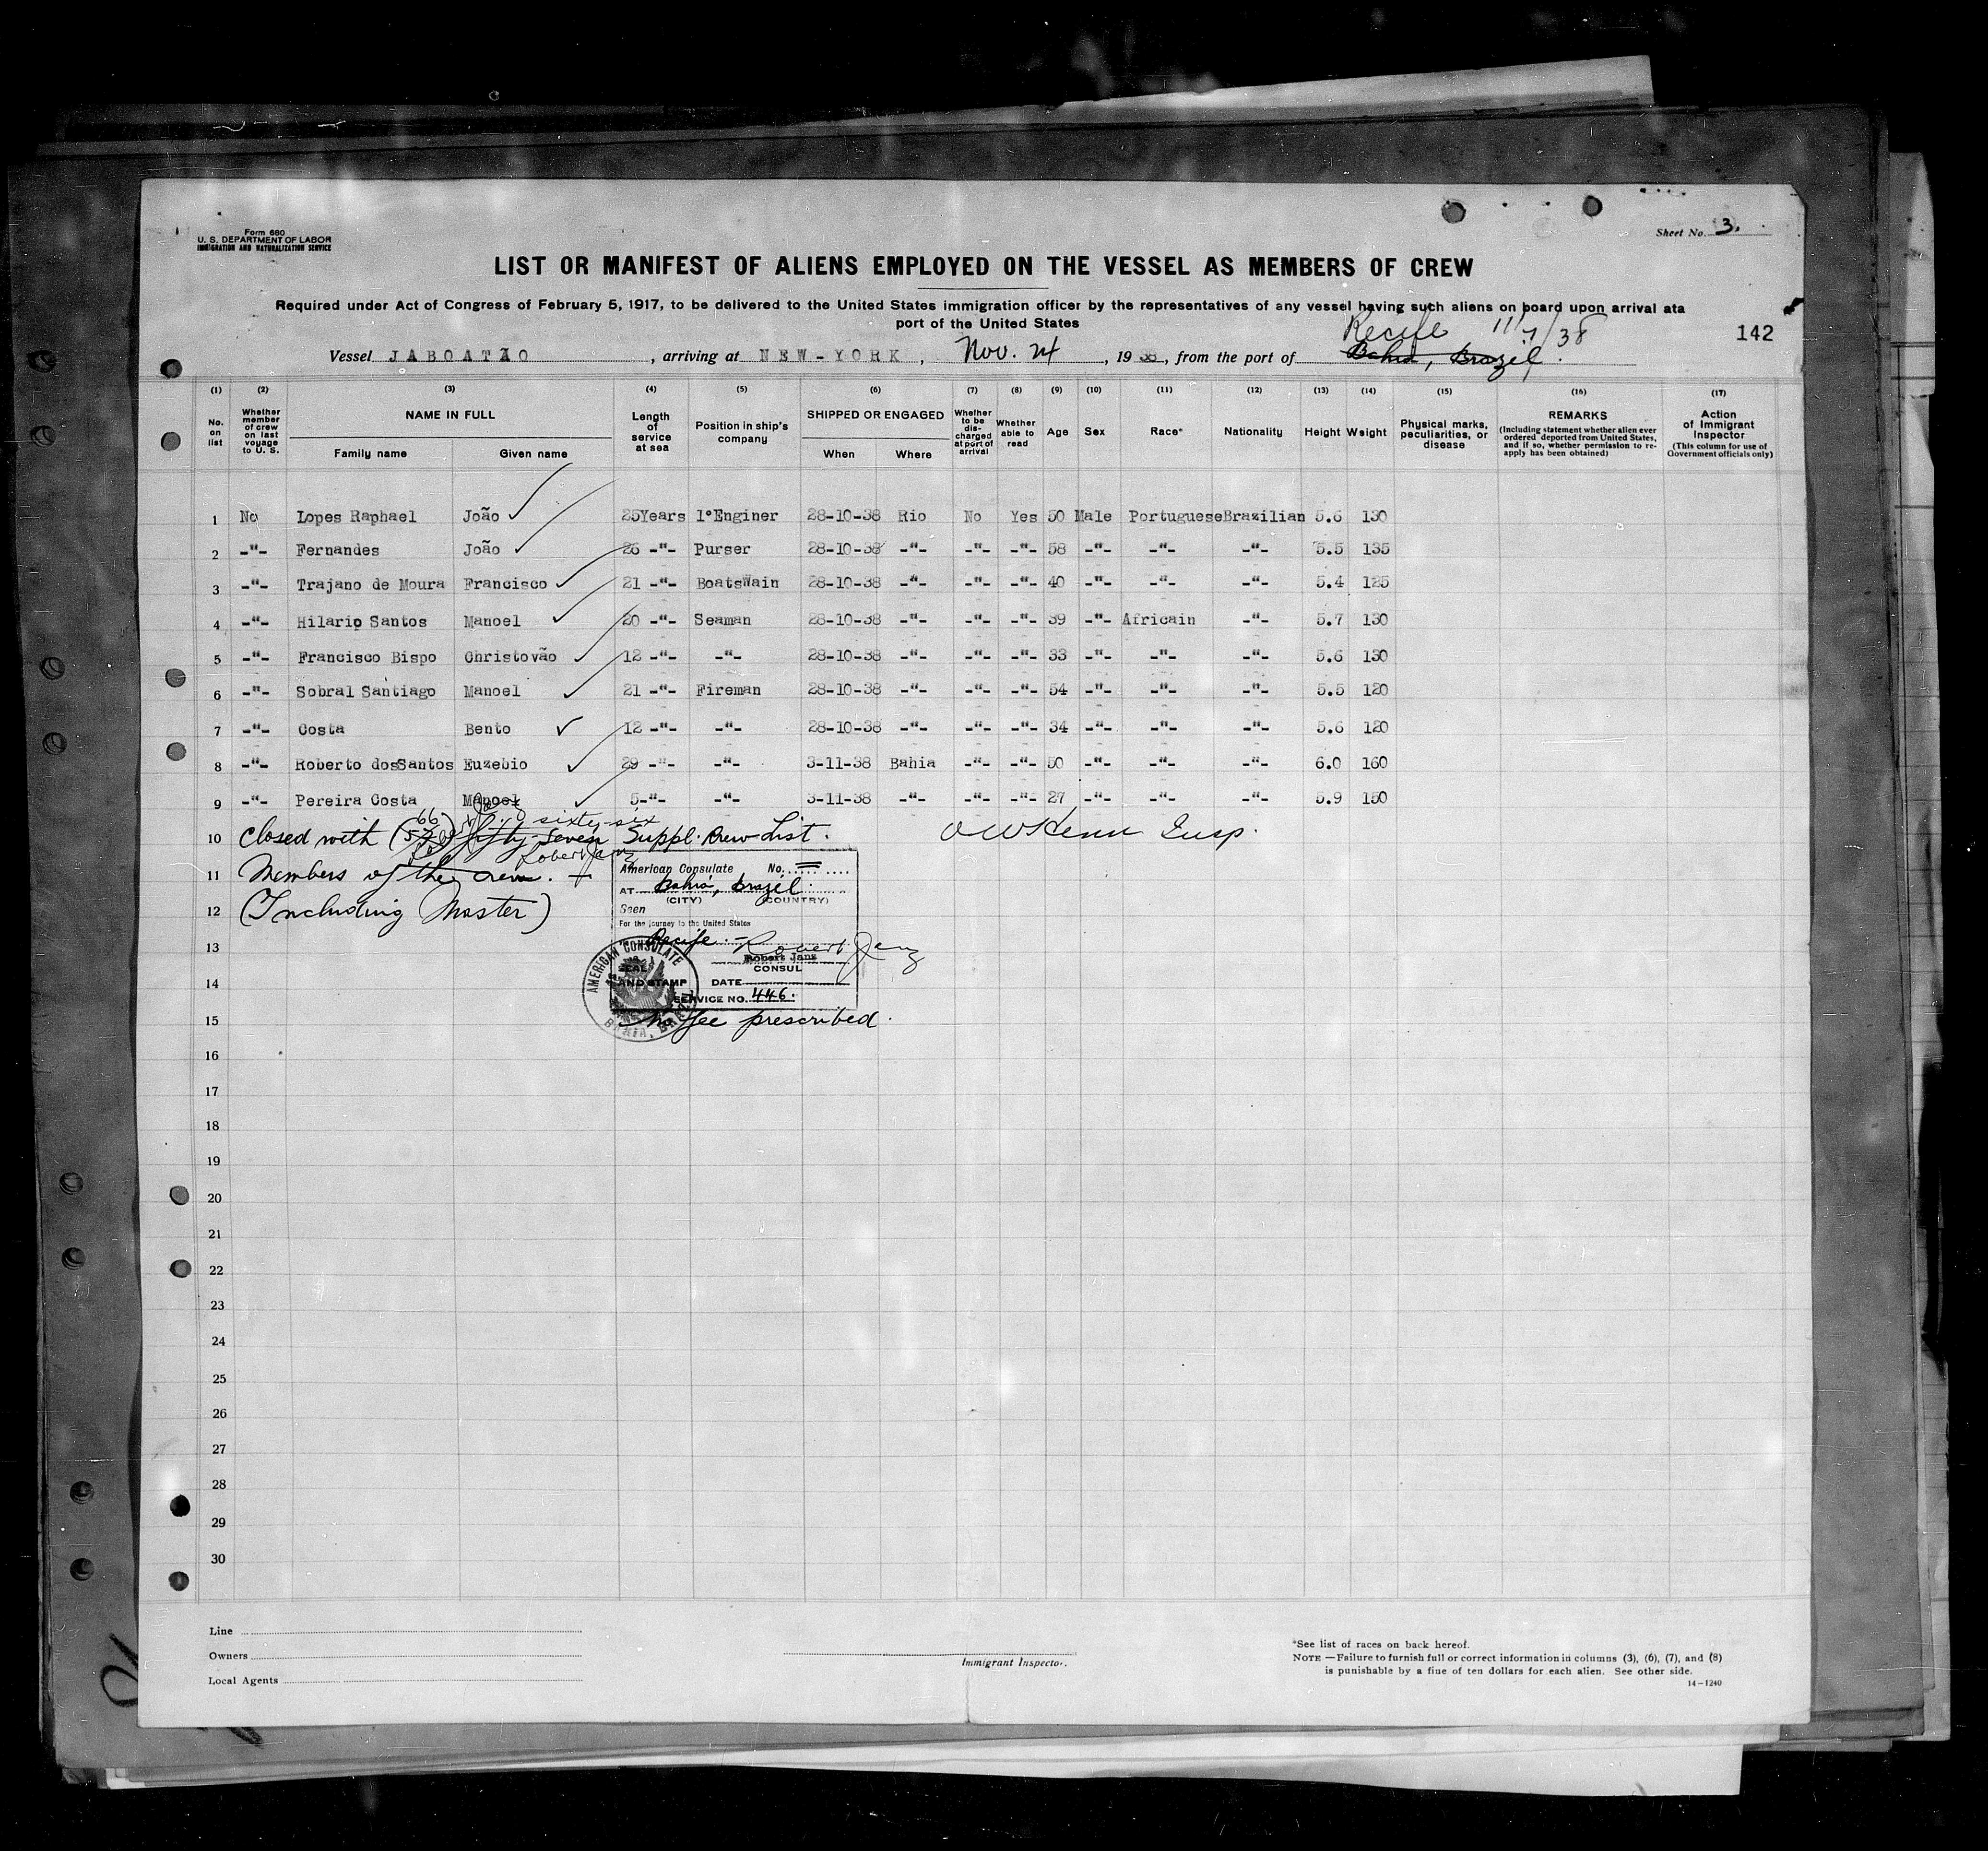 Form 680
U. S. DEPARTMENT OF LABOR
IMMIGRATION AND NATURALIZATION SERVICE
Sheet No. 3.
LIST OR MANIFEST OF ALIENS EMPLOYED ON THE VESSEL AS MEMBERS OF CREW
Required under Act of Congress of February 5, 1917, to be delivered to the United States immigration officer by the representatives of any vessel having such aliens on board upon arrival at a
port of the United States
Recife 11/7/38
142
Vessel JABOATÃO, arriving at NEW-YORK, Nov. 24, 1938, from the port of Bahia, Brazil.
(1) (2) (3) (4) (5) (6) (7) (8) (9) (10) (11) (12) (13) (14) (15) (16) (17)
No. on list Whether member of crew on last voyage to U. S. NAME IN FULL Family name Given name Length of service at sea Position in ship's company SHIPPED OR ENGAGED When Where Whether to be discharged at port of arrival Whether able to read Age Sex Race* Nationality Height Weight Physical marks, peculiarities, or disease REMARKS (Including statement whether alien ever ordered deported from United States, and if so, whether permission to reapply has been obtained) Action of Immigrant Inspector (This column for use of Government officials only)
1 No Lopes Raphael João 25Years 1°Enginer 28-10-38 Rio No Yes 50 Male Portuguese Brazilian 5.6 130
2 -"- Fernandes João 26 -"- Purser 28-10-38 -"- -"- -"- 58 -"- -"- -"- 5.5 135
3 -"- Trajano de Moura Francisco 21 -"- BoatsWain 28-10-38 -"- -"- -"- 40 -"- -"- -"- 5.4 125
4 -"- Hilario Santos Manoel 20 -"- Seaman 28-10-38 -"- -"- -"- 39 -"- Africain -"- 5.7 130
5 -"- Francisco Bispo Christovão 12 -"- -"- 28-10-38 -"- -"- -"- 33 -"- -"- -"- 5.6 130
6 -"- Sobral Santiago Manoel 21 -"- Fireman 28-10-38 -"- -"- -"- 54 -"- -"- -"- 5.5 120
7 -"- Costa Bento 12 -"- -"- 28-10-38 -"- -"- -"- 34 -"- -"- -"- 5.6 120
8 -"- Roberto dosSantos Euzebio 29 -"- -"- 3-11-38 Bahia -"- -"- 50 -"- -"- -"- 6.0 160
9 -"- Pereira Costa Manoel 5-"- -"- 3-11-38 -"- -"- -"- 27 -"- -"- -"- 5.9 150
66 sixty-six
10 Closed with (57) fifty-seven Suppl. Crew List. Insp.
11 Members of the crew.
12 (Including Master)
American Consulate No.
AT Bahia, Brazil.
(CITY) (COUNTRY)
Seen
For the journey to the United States
Recife.- Robert Janz
Robert Janz
CONSUL
SEAL AND STAMP
DATE
SERVICE NO. 446.
AMERICAN CONSULATE
BAHIA, BRAZIL
No fee prescribed.
13
14
15
16
17
18
19
20
21
22
23
24
25
26
27
28
29
30
Line
Owners
Local Agents
Immigrant Inspector.
*See list of races on back hereof.
NOTE—Failure to furnish full or correct information in columns (3), (6), (7), and (8)
is punishable by a fine of ten dollars for each alien. See other side.
14-1240